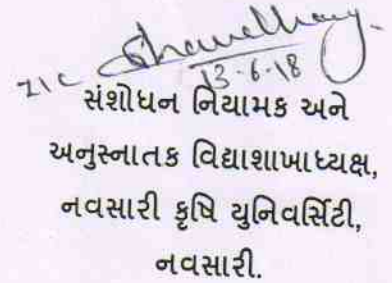 Chaudhary
13-6-18
સંશોધન નિયામક અને
અનુસ્નાતક વિદ્યાશાખાધ્યક્ષ,
નવસારી કૃષિ યુનિવર્સિટી,
નવસારી.